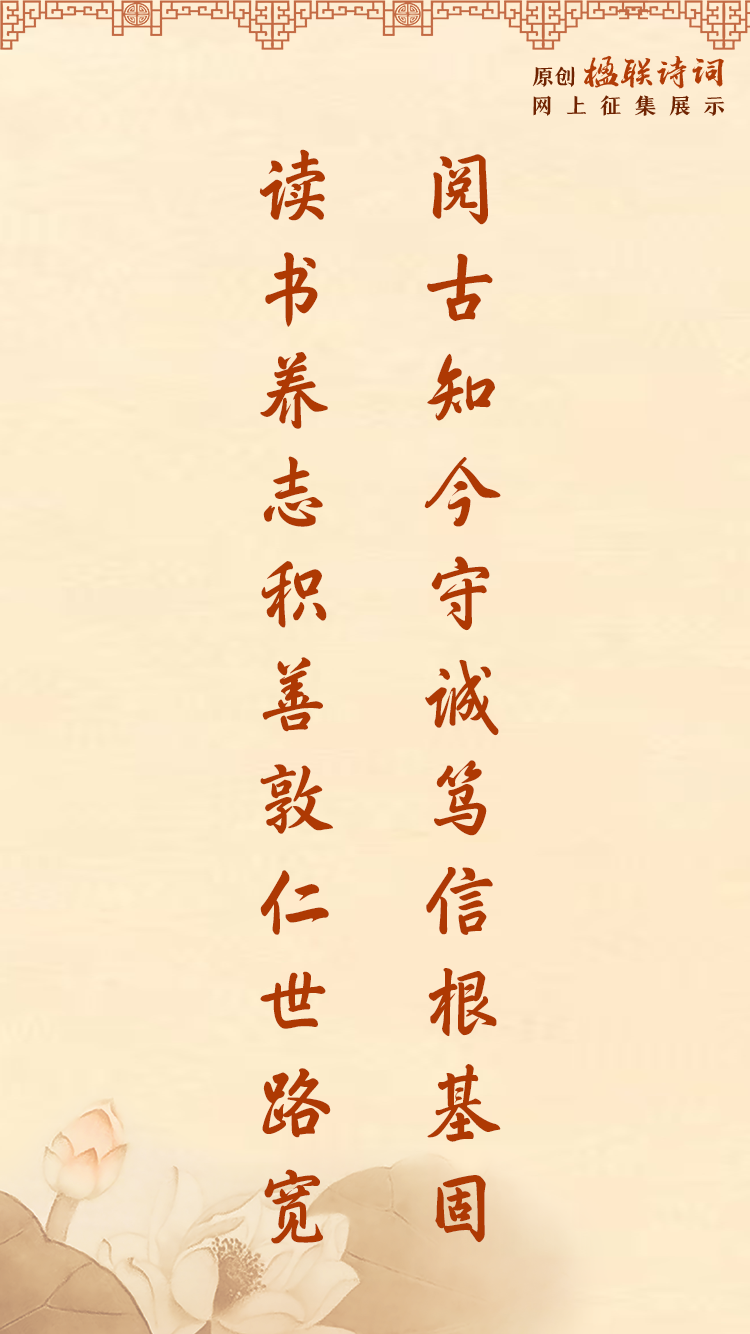 原创 楹联诗词
网上征集展示
阅古知今守诚笃信根基固
读书养志积善敦仁世路宽